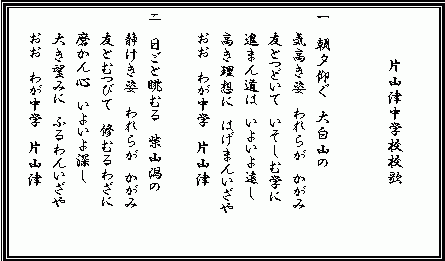 片山津中学校校歌
一 朝夕仰ぐ 大白山の
気高き姿 われらが かがみ
友とつどいて いそしむ学に
進まん道は いよいよ遠し
高き理想に はげまんいざや
おお わが中学 片山津
二 日ごと眺むる 柴山潟の
静けき姿 われらが かがみ
友とむつびて 修むるわざに
磨かん心 いよいよ深し
大き望みに ふるわんいざや
おお わが中学 片山津